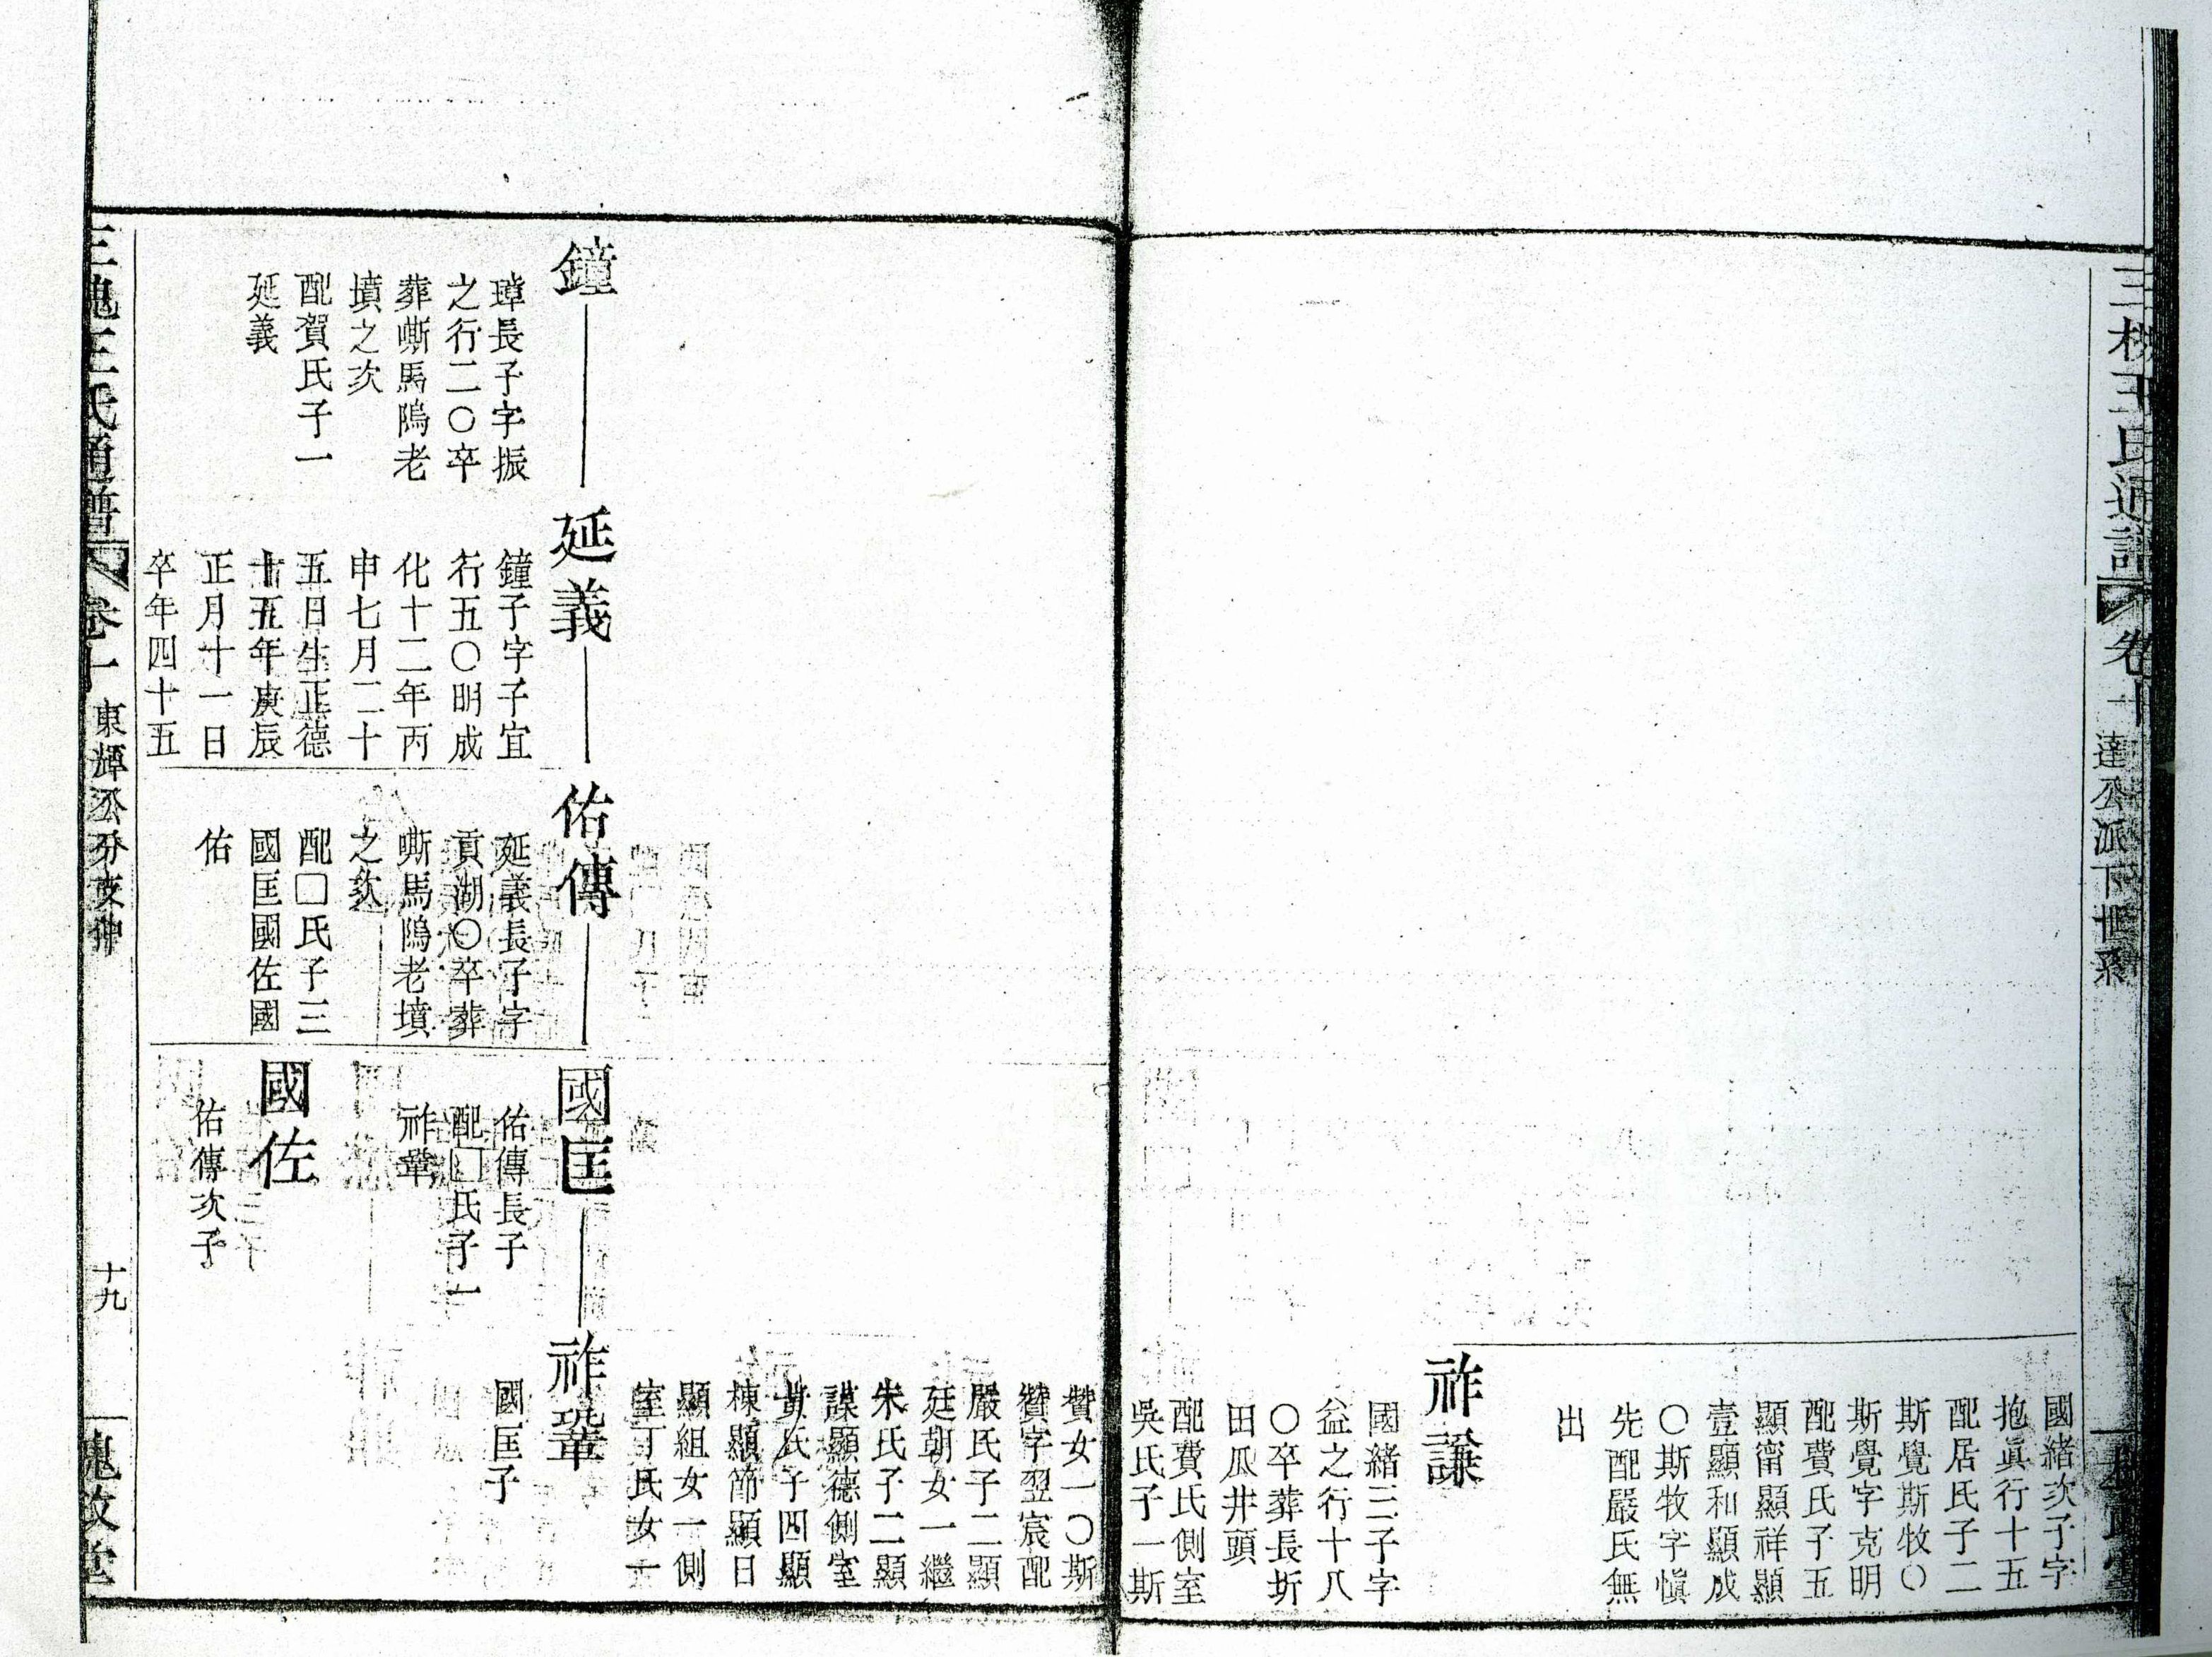 三槐王氏通譜
卷十
達公派下世系
國緒次子字
抱眞行十五
配居氏子二
斯覺斯牧〇
斯覺字克明
配費氏子五
顯甯顯祥顯
壹顯和顯成
〇斯牧字愼
先配嚴氏無
出
祚謙
國緒三子字
益之行十八
〇卒葬長圻
田瓜井頭
配費氏側室
吳氏子一斯
贊女一〇斯
贊字翌宸配
嚴氏子二顯
廷朝女一繼
朱氏子二顯
謨顯德側室
黃氏子四顯
棟顯節顯日
顯組女一側
室丁氏女一
鐘
璋長子字振
之行二〇卒
葬嘶馬隖老
墳之次
配賀氏子一
延義
延義
鐘子字子宜
行五〇明成
化十二年丙
申七月二十
五日生正德
十五年庚辰
正月十一日
卒年四十五
佑傳
延義長子字
貢湖〇卒葬
嘶馬隖老墳
之次
配□氏子三
國匡國佐國
佑
國匡
佑傳長子
配□氏子一
祚鞏
國佐
佑傳次子
祚鞏
國匡子
三槐王氏通譜
卷十
東輝公分支仲
十九
槐政堂